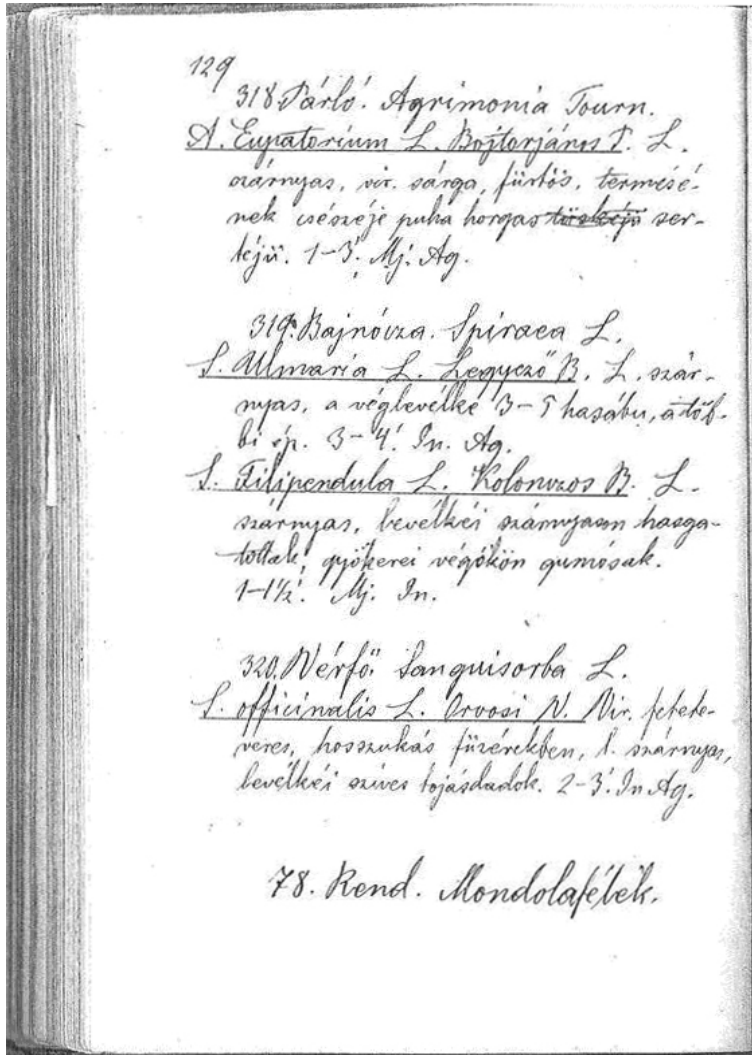 129
318. Párló. Agrimonia Tourn.
A. Eupatorium L. Bojtorjános P. L.
szárnyas, vir. sárga, fürtös, termésé-
nek csészéje puha horgas tüskéjü ser-
téjü. 1-3'. Mj. Ag.
319. Bajnócza. Spiraea L.
S. Ulmaria L. Legyező B. L. szár-
nyas, a véglevélke 3-5 hasábu, a töb-
bi ép. 3-4'. In. Ag.
S. Filipendula L. Kolonczos B. L.
szárnyas, levélkéi szárnyason hasga-
tottak, gyökerei végökön gumósak.
1-1½'. Mj. In.
320. Vérfő. Sanguisorba L.
S. officinalis L. Orvosi V. Vir. fekete-
veres, hosszukás füzérekben, l. szárnyas,
levélkéi szives tojásdadok. 2-3'. In Ag.
78. Rend. Mondolafélék.